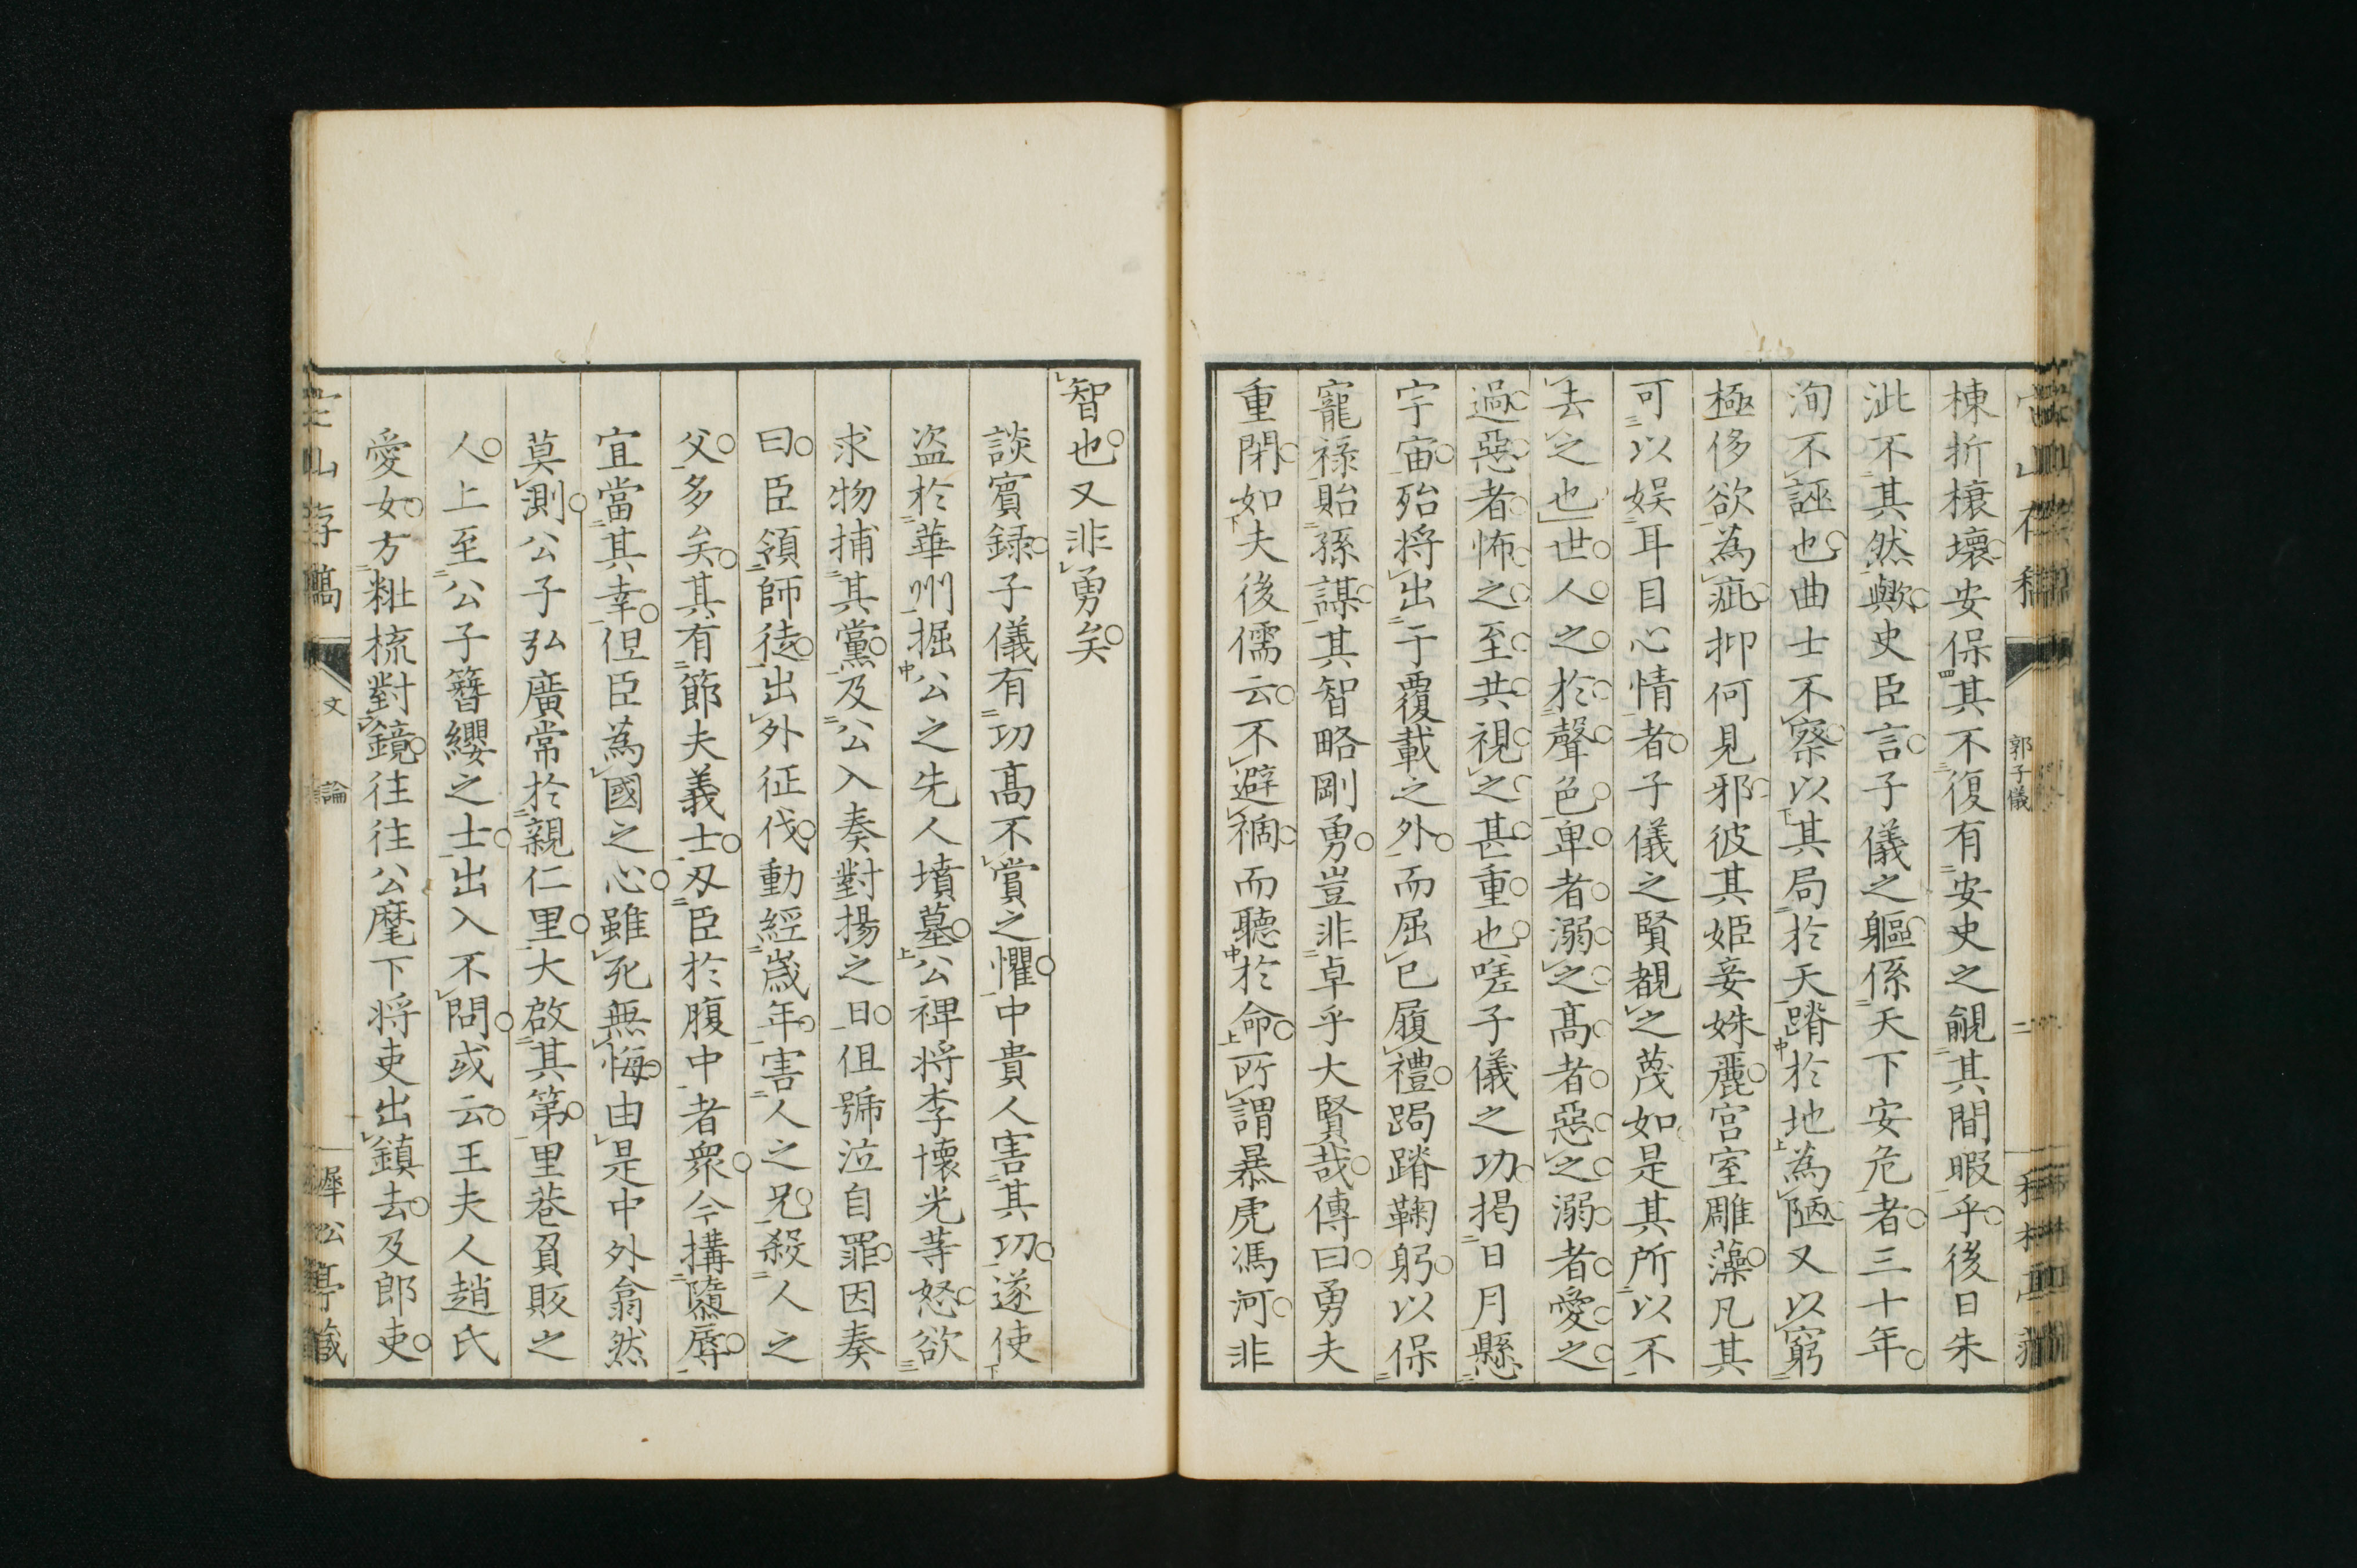 郭子儀
二
棟折榱壞安保其不復有安史之覦其間暇乎後日朱
泚不其然歟史臣言子儀之軀係天下安危者三十年
洵不誣也曲士不察以其局於天蹐於地為陋又以窮
極侈欲為疵抑何見邪彼其姬妾姝麗宮室雕藻凡其
可以娛耳目心情者子儀之賢覩之蔑如是其所以不
去之也世人之於聲色卑者溺之高者惡之溺者愛之
過惡者怖之至共視之甚重也嗟子儀之功揭日月懸
宇宙殆将出于覆載之外而屈已履禮跼蹐鞠躬以保
寵祿貽孫謀其智略剛勇豈非卓乎大賢哉傳曰勇夫
重閉如夫後儒云不避禍而聽於命所謂暴虎馮河非
智也又非勇矣
談賓録子儀有功高不賞之懼中貴人害其功遂使
盗於華州掘公之先人墳墓公裨将李懷光等怒欲
求物捕其黨及公入奏對揚之日但號泣自罪因奏
曰臣領師徒出外征伐動經歲年害人之兄殺人之
父多矣其有節夫義士刃臣於腹中者衆今搆隳辱
宜當其幸但臣為國之心雖死無悔由是中外翕然
莫測公子弘廣常於親仁里大啟其第里巷負販之
人上至公子簪纓之士出入不問或云王夫人趙氏
愛女方粃梳對鏡往往公麾下将吏出鎮去及郎吏
山存稿
文
論
犀松亭藏